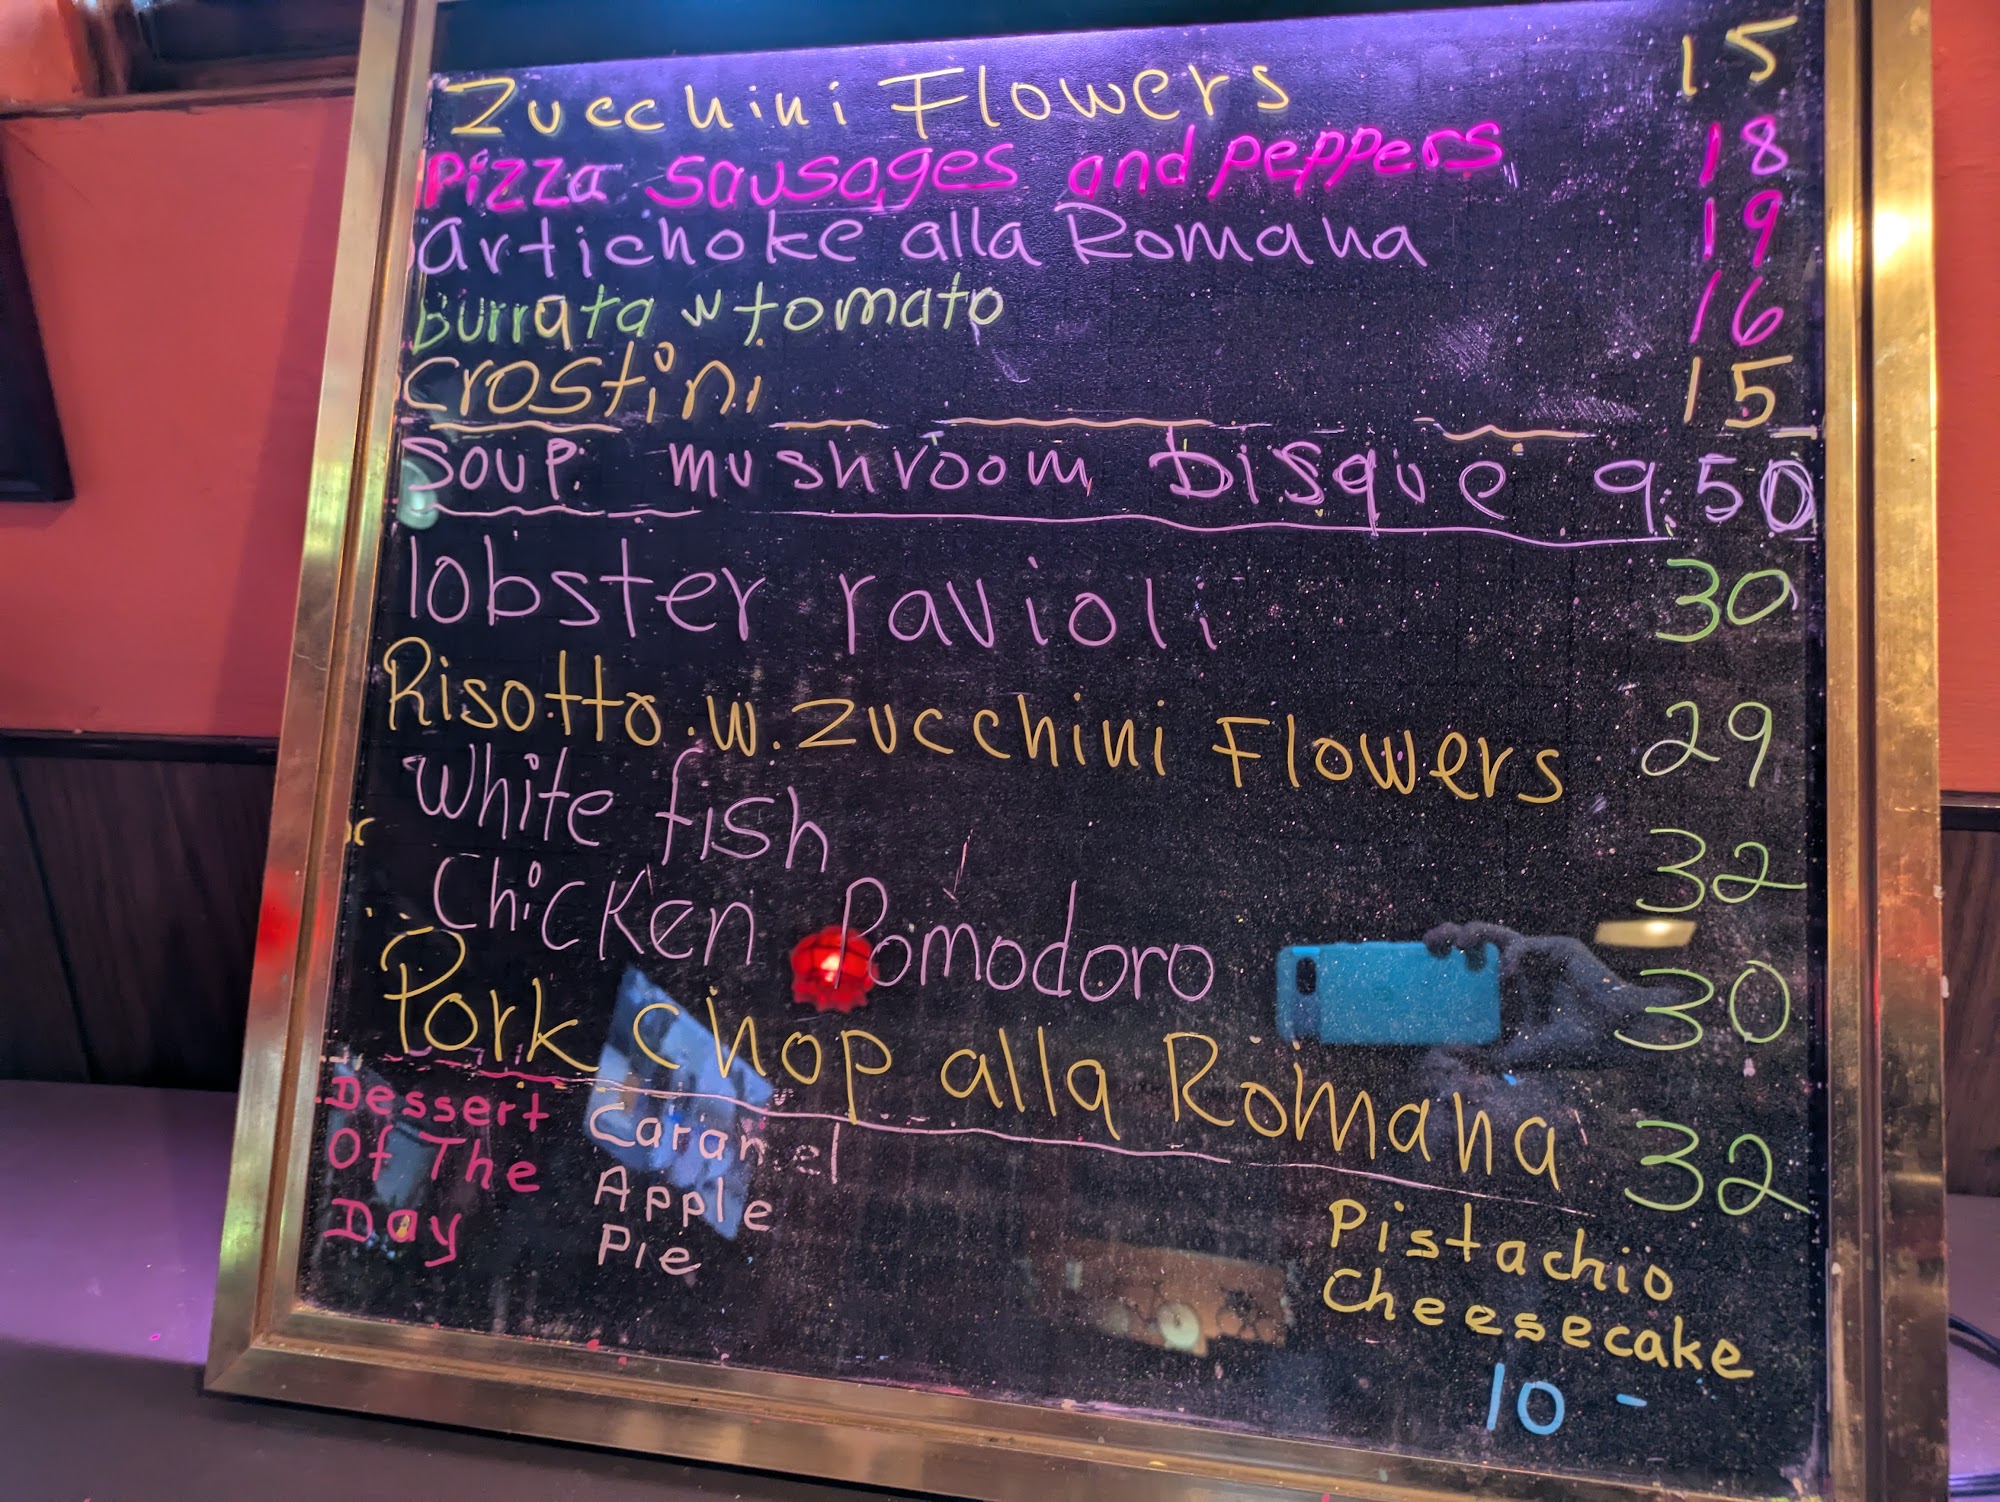 Zucchini Flowers 15
Pizza sausages and peppers 18
artichoke alla Romana 19
burrata w tomato 16
crostini 15
soup. mushroom bisque 9.50
lobster ravioli 30
Risotto. w. zucchini Flowers 29
White fish 32
Chicken Pomodoro 30
Pork chop alla Romana 32
Dessert
Of The
Day
Caramel
Apple
Pie
Pistachio
Cheesecake
10 -